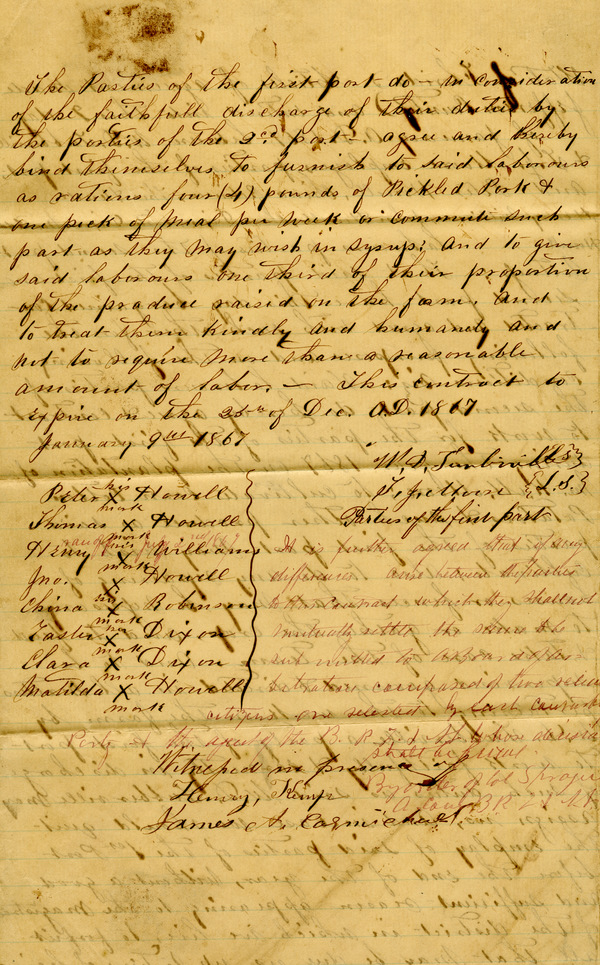 The Parties of the first part do — in consideration
of the faithfull discharge of their duties by
the parties of the 2cd part — agree and hereby
bind themselves to furnish to said labourours
as rations four (4) pounds of Pickled Pork &
one peck of meal per week or commute such
part as they may wish in syrup; and to give
said labourours one third of their proportion
of the produce raised on the farm. And
to treat them kindly and humanely and
not to require more than a reasonable
amount of labor. — This contract to
expire on the 25th of Dec. A.D. 1867
January 9th 1867
W. D. {L.S.}
{L.S.}
Parties of the first part
Peter his X mark Howell
Thomas X mark Howell
Henry his X mark Williams
Jno. X Howell
China his X mark Robinson
Easter his X mark Dixon
Clara X mark Dixon
Matilda X mark Howell
It is further agreed that if any
difference arise between the parties
to this contract which they shall not
mutually settle the same to be
submitted to a board of ar-
bitrators composed of two
citizens one selected by each
Party & the agent of the B. R. F. & A. L. whose decision
shall be final
Witnessed in presence of
By order of Col Sprague
Henry, Kemp
James A. Carmichael.